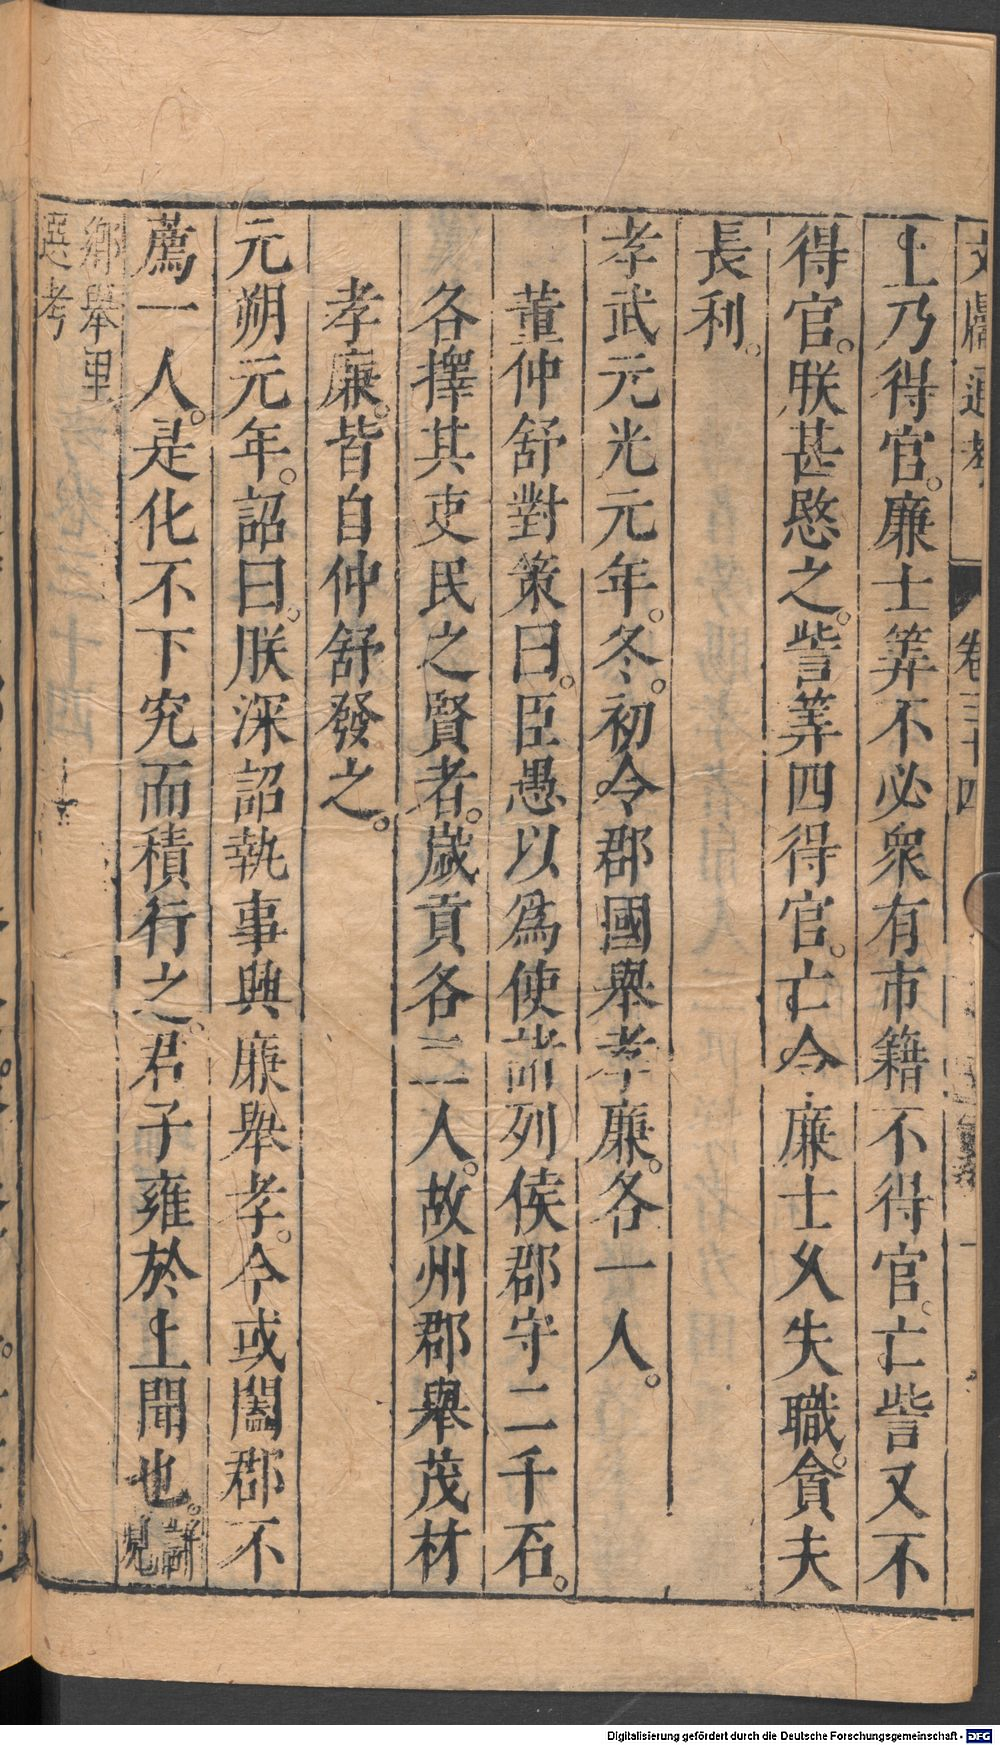 文獻通考　卷三十四　一
上乃得官。廉士筭不必衆有市籍不得官。亡訾又不
得官。朕甚愍之。訾筭四得官。亡令廉士久失職。貪夫
長利。
孝武元光元年。冬。初令郡國舉孝廉。各一人。
董仲舒對策曰。臣愚以爲使諸列侯郡守二千石。
各擇其吏民之賢者。歲貢各二人。故州郡舉茂材
孝廉。皆自仲舒發之。
元朔元年。詔曰。朕深詔執事興廉舉孝。今或闔郡不
薦一人。是化不下究而積行之。君子雍於上聞也。詳見
鄉舉里
選考
Digitalisierung gefördert durch die Deutsche Forschungsgemeinschaft - DFG